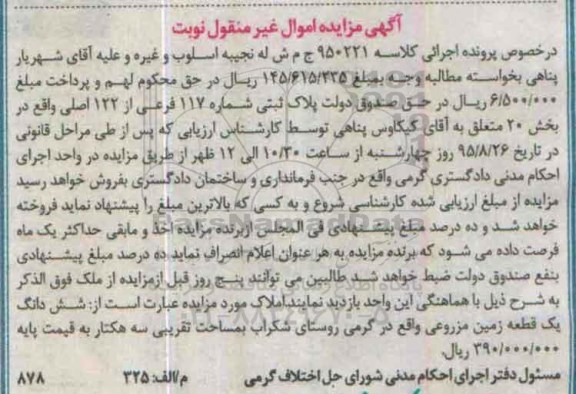 آگهی مزایده اموال غیر منقول نوبت
درخصوص پرونده اجرائی کلاسه ۹۵۰۲۲۱ ج م ش له نجیبه اسلوب و غیره و علیه آقای شهریار
پناهی بخواسته مطالبه وجه بمبلغ ۱۴۵/۶۱۵/۴۳۵ ریال در حق محکوم لهم و پرداخت مبلغ
۶/۵۰۰/۰۰۰ ریال در حق صندوق دولت پلاک ثبتی شماره ۱۱۷ فرعی از ۱۲۲ اصلی واقع در
بخش ۲۰ متعلق به آقای کیکاوس پناهی توسط کارشناس ارزیابی که پس از طی مراحل قانونی
در تاریخ ۹۵/۸/۲۶ روز چهارشنبه از ساعت ۱۰/۳۰ الی ۱۲ ظهر از طریق مزایده در واحد اجرای
احکام مدنی دادگستری گرمی واقع در جنب فرمانداری و ساختمان دادگستری بفروش خواهد رسید
مزایده از مبلغ ارزیابی شده کارشناسی شروع و به کسی که بالاترین مبلغ را پیشنهاد نماید فروخته
خواهد شد و ده درصد مبلغ پیشنهادی فی المجلس ازبرنده مزایده اخذ و مابقی حداکثر یک ماه
فرصت داده می شود که برنده مزایده به هر عنوان اعلام انصراف نماید ده درصد مبلغ پیشنهادی
بنفع صندوق دولت ضبط خواهد شد طالبین می توانند پنج روز قبل ازمزایده از ملک فوق الذکر
به شرح ذیل با هماهنگی این واحد بازدید نمایند.املاک مورد مزایده عبارت است از: شش دانگ
یک قطعه زمین مزروعی واقع در گرمی روستای شکراب بمساحت تقریبی سه هکتار به قیمت پایه
۳۹۰/۰۰۰/۰۰۰ ریال.
مسئول دفتر اجرای احکام مدنی شورای حل اختلاف گرمی م/الف: ۳۲۵ ۸۷۸